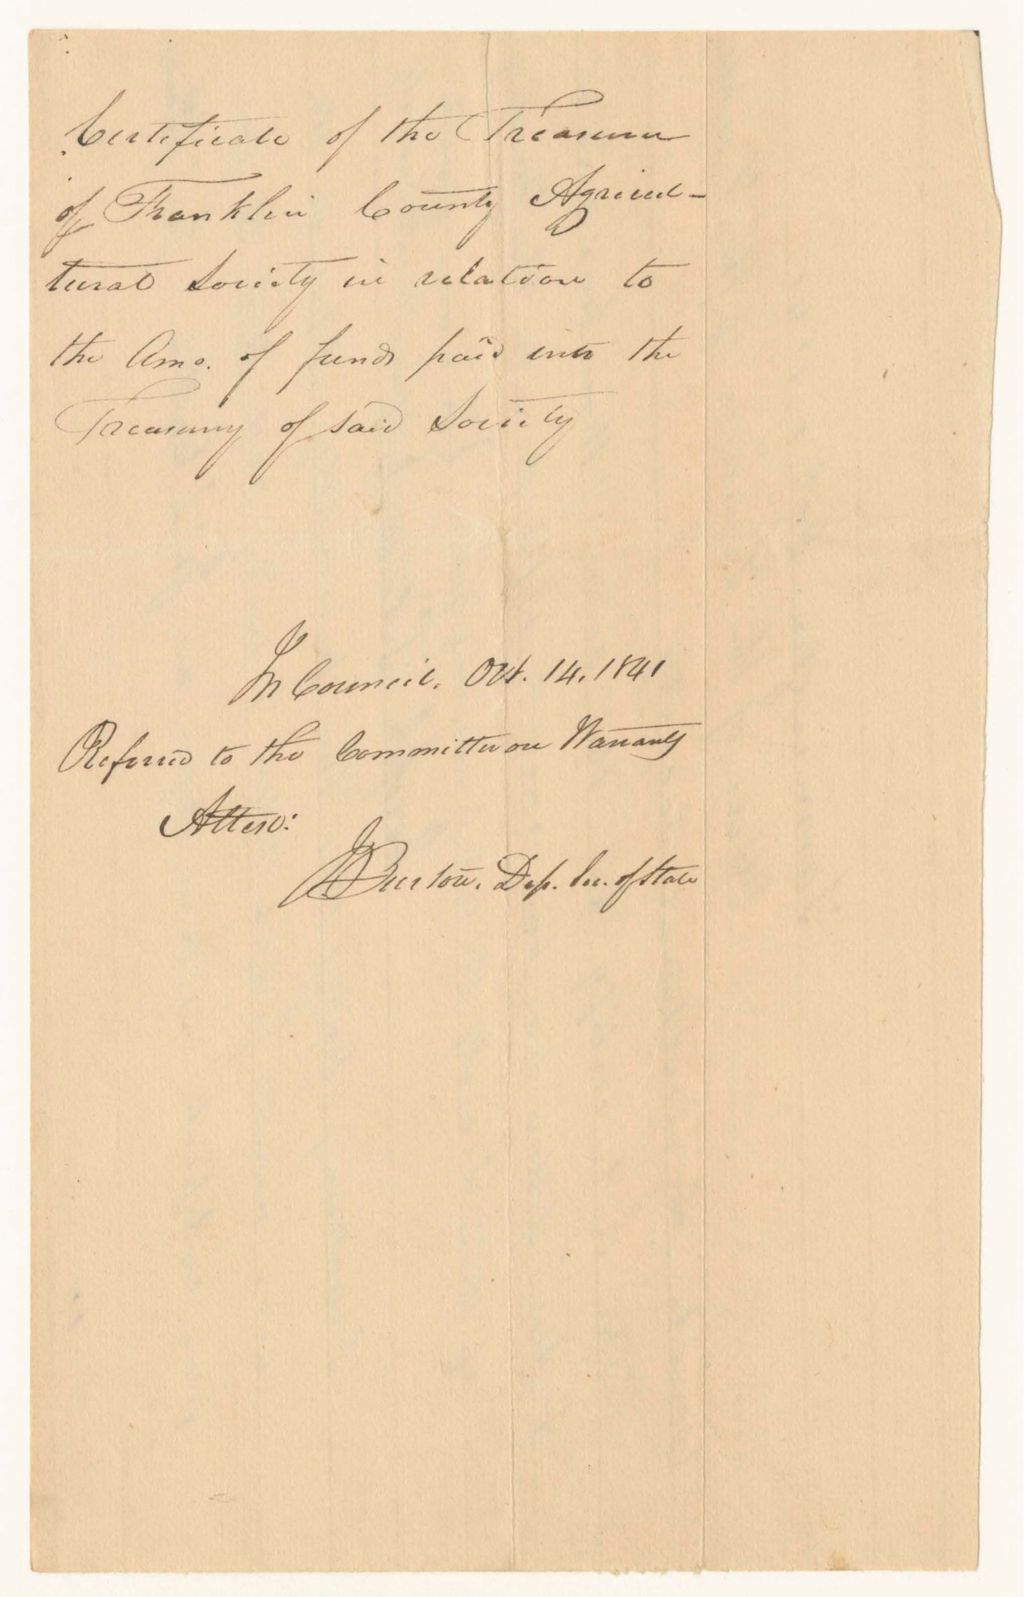 Certificate of the Treasurer
of Franklin County Agricul-
tural Society in relation to
the Amo. of funds paid into the
Treasury of said Society
In Council, Oct. 14, 1841
Referred to the Committee on Warrants
Attest:
J Burton, Dep. Sec. of State